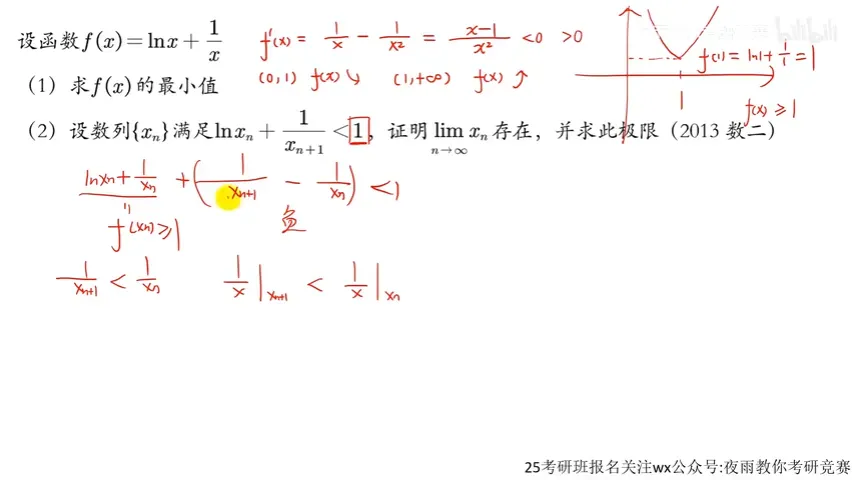 设函数 f(x) = ln x + 1/x
f'(x) = 1/x − 1/x² = (x−1)/x² <0 >0
(0,1) f(x)↘ (1,+∞) f(x)↗
f(1) = ln1 + 1/1 = 1
1
f(x) ≥ 1
bilibili
(1) 求 f(x) 的最小值
(2) 设数列{xₙ}满足 ln xₙ + 1/xₙ₊₁ < 1，证明 lim_{n→∞} xₙ 存在，并求此极限（2013 数二）
ln xₙ + 1/xₙ + (1/xₙ₊₁ − 1/xₙ) < 1
f(xₙ) ≥ 1 负
1/xₙ₊₁ < 1/xₙ 1/x |xₙ₊₁ < 1/x |xₙ
25考研班报名关注wx公众号:夜雨教你考研竞赛